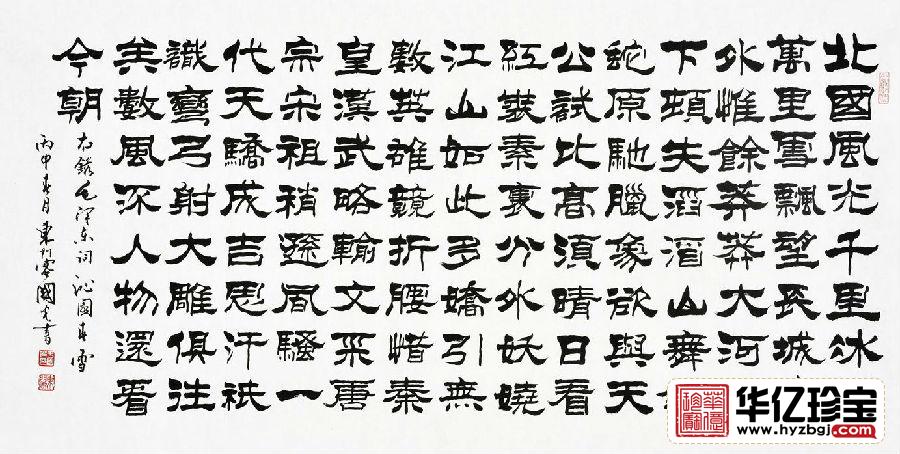 北國風光千里冰
萬里雪飄望長城
外惟餘莽莽大河
下頓失滔滔山舞
蛇原馳臘象欲與天
公試比高須晴日看
紅裝素裹分外妖嬈
江山如此多嬌引無
數英雄競折腰惜秦
皇漢武略輸文采唐
宗宋祖稍遜風騷一
代天驕成吉思汗祇
識彎弓射大雕俱往
矣數風流人物還看
今朝
右錄毛澤東詞沁園春雪
丙申春月
華億珍寶
华亿珍宝
www.hyzbgj.com